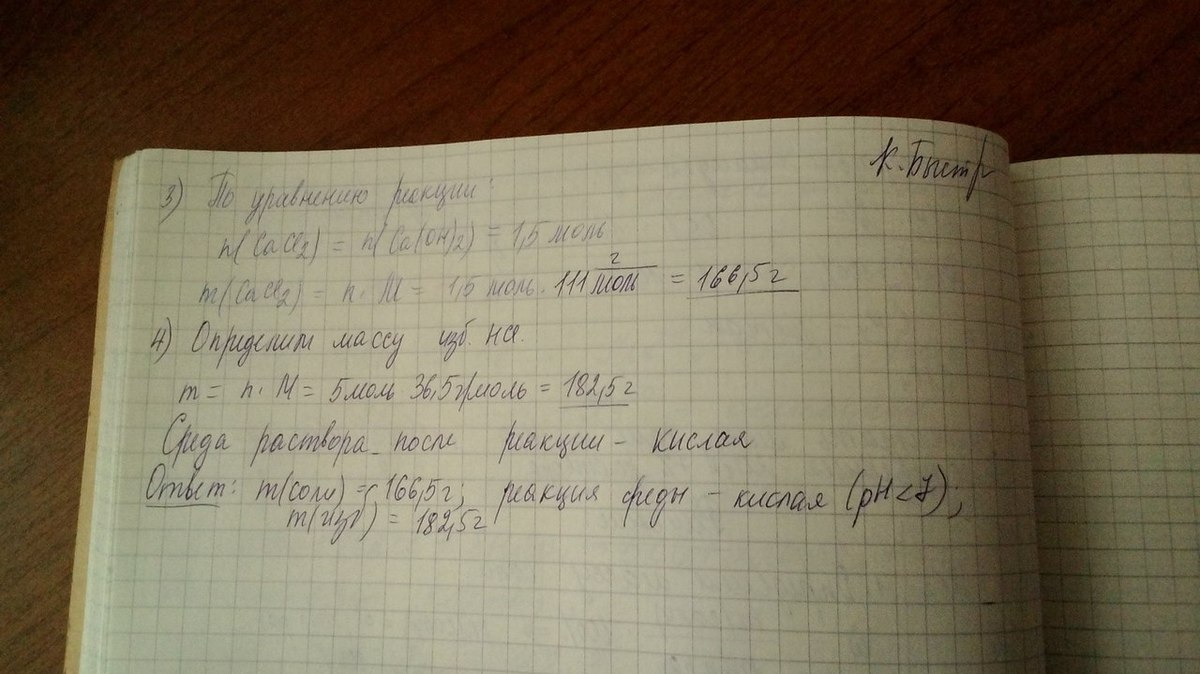 К. Быстр
3) По уравнению реакции:
n(CaCl2) = n(Ca(OH)2) = 1,5 моль
m(CaCl2) = n · M = 1,5 моль · 111 г/моль = 166,5 г
4) Определим массу изб. HCl.
m = n · M = 5 моль 36,5 г/моль = 182,5 г
Среда раствора после реакции - кислая
Ответ: m(соли) = 166,5 г; реакция среды - кислая (pH < 7);
m(изб) = 182,5 г